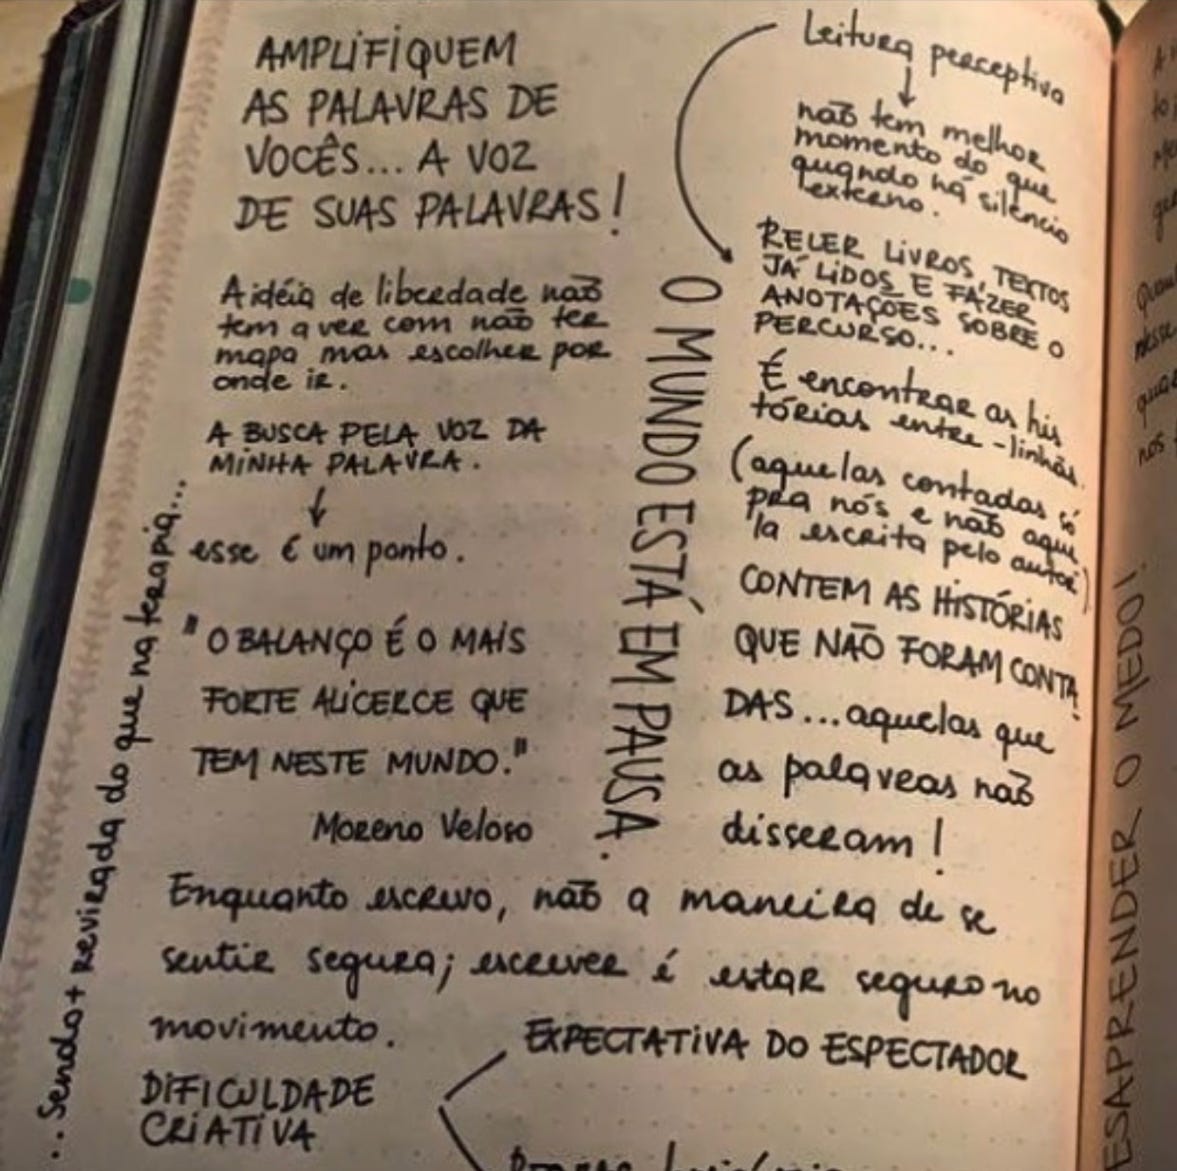 AMPLIFIQUEM
AS PALAVRAS DE
VOCÊS... A VOZ
DE SUAS PALAVRAS!
A idéia de liberdade não
tem a ver com não ter
mapa mas escolher por
onde ir.
A BUSCA PELA VOZ DA
MINHA PALAVRA.
esse é um ponto.
"O BALANÇO É O MAIS
FORTE ALICERCE QUE
TEM NESTE MUNDO."
Moreno Veloso
...Sendo + revirada do que na terapia...
O MUNDO ESTÁ EM PAUSA.
Leitura perceptiva
não tem melhor
momento do que
quando há silêncio
externo.
RELER LIVROS, TEXTOS
JÁ LIDOS E FAZER
ANOTAÇÕES SOBRE O
PERCURSO...
É encontrar as his
tórias entre-linhas.
(aquelas contadas só
pra nós e não aque
la escrita pelo autor)
CONTEM AS HISTÓRIAS
QUE NÃO FORAM CONTA
DAS... aquelas que
as palavras não
disseram!
Enquanto escrevo, não a maneira de se
sentir segura; escrever é estar seguro no
movimento.
DIFICULDADE
CRIATIVA
EXPECTATIVA DO ESPECTADOR
ESAPRENDER O MEDO!